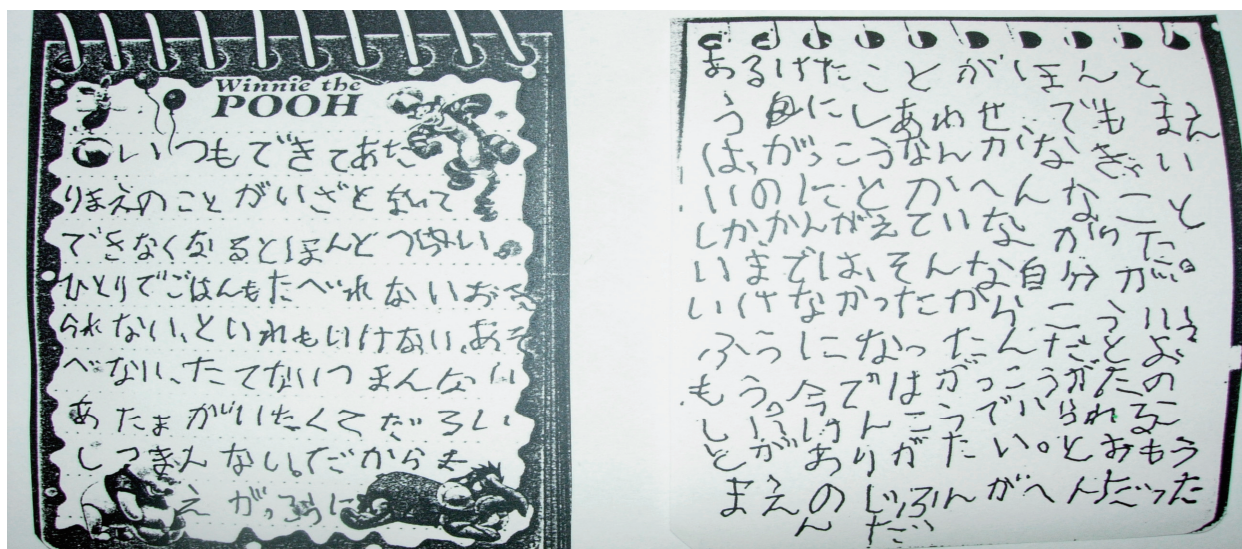 Winnie the
POOH
いつもできてあた
りまえのことがいざとなって
できなくなるとほんとつらい
ひとりでごはんもたべれないおき
られない、といれもいけない、あそ
べない、たてないつまんない
あたまがいたくてだるい
しつまんない。だからま
えがっこうに
あるけたことがほんと
うにしあわせ。でもまえ
は、がっこうなんかなきゃい
いのにとかへんなこと
しかかんがえていながった。
いまでは、そんな自分が
いけなかったからこういう
ふうになったんだとお
もう。今ではがっこうがたの
しいけんこうでいられるこ
とがありがたい。とおもう
まえのじぶんがへんだった
んだ